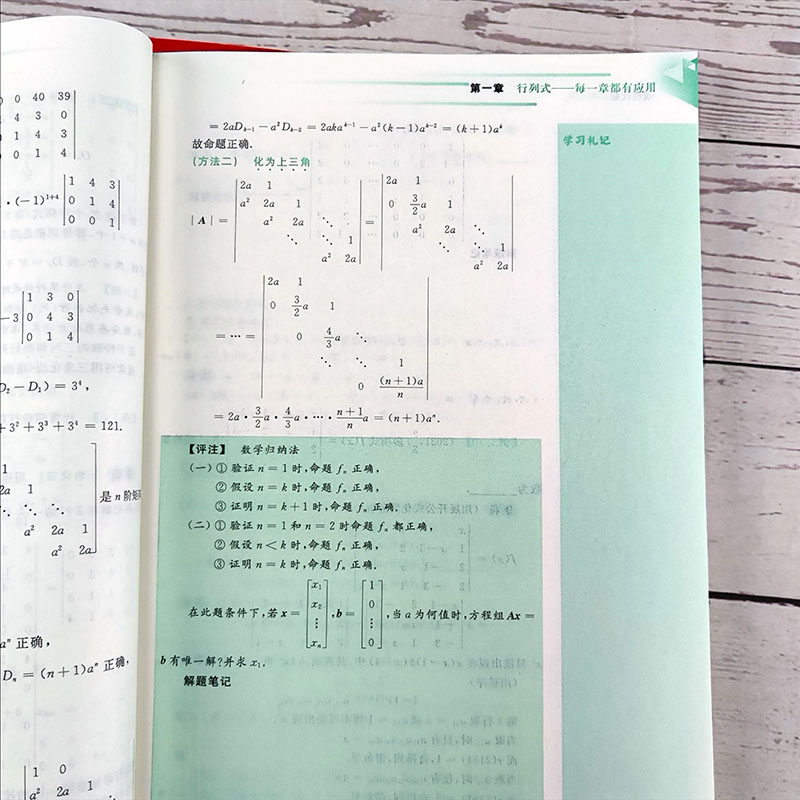 0 0 40 39
1 4 3 0
0 1 4 3
0 0 1 4
· (-1)¹⁺⁴ | 1 4 3 |
| 0 1 4 |
| 0 0 1 |
-3 | 1 3 0 |
| 0 4 3 |
| 0 1 4 |
D₂ - D₁) = 3⁴,
+ 3² + 3³ + 3⁴ = 121.
1
2a 1
⋱ ⋱ ⋱
a² 2a 1
a² 2a
是 n 阶矩
aⁿ 正确,
Dₙ = (n+1)aⁿ 正确,
1 0
a² 2a 1
第一章 行列式——每一章都有应用
学习札记
= 2aDₖ₋₁ - a²Dₖ₋₂ = 2akaᵏ⁻¹ - a²(k-1)aᵏ⁻² = (k+1)aᵏ
故命题正确.
(方法二) 化为上三角
|A| = | 2a 1 | = | 2a 1 |
| a² 2a 1 | | 0 3/2 a 1 |
| a² 2a ⋱ | | a² 2a ⋱ |
| ⋱ ⋱ 1 | | ⋱ ⋱ 1 |
| a² 2a | | a² 2a |
| 2a 1 |
| 0 3/2 a 1 |
= ⋯ = | 0 4/3 a ⋱ |
| ⋱ ⋱ 1 |
| 0 (n+1)a/n |
= 2a · 3/2 a · 4/3 a · ⋯ · n+1/n a = (n+1)aⁿ.
【评注】 数学归纳法
(一) ① 验证 n = 1 时,命题 fₙ 正确,
② 假设 n = k 时,命题 fₙ 正确,
③ 证明 n = k+1 时,命题 fₙ 正确.
(二) ① 验证 n = 1 和 n = 2 时命题 fₙ 都正确,
② 假设 n < k 时,命题 fₙ 正确,
③ 证明 n = k 时,命题 fₙ 正确.
在此题条件下,若 x = [x₁ x₂ ⋮ xₙ], b = [1 0 ⋮ 0], 当 a 为何值时,方程组 Ax =
b 有唯一解?并求 x₁.
解题笔记